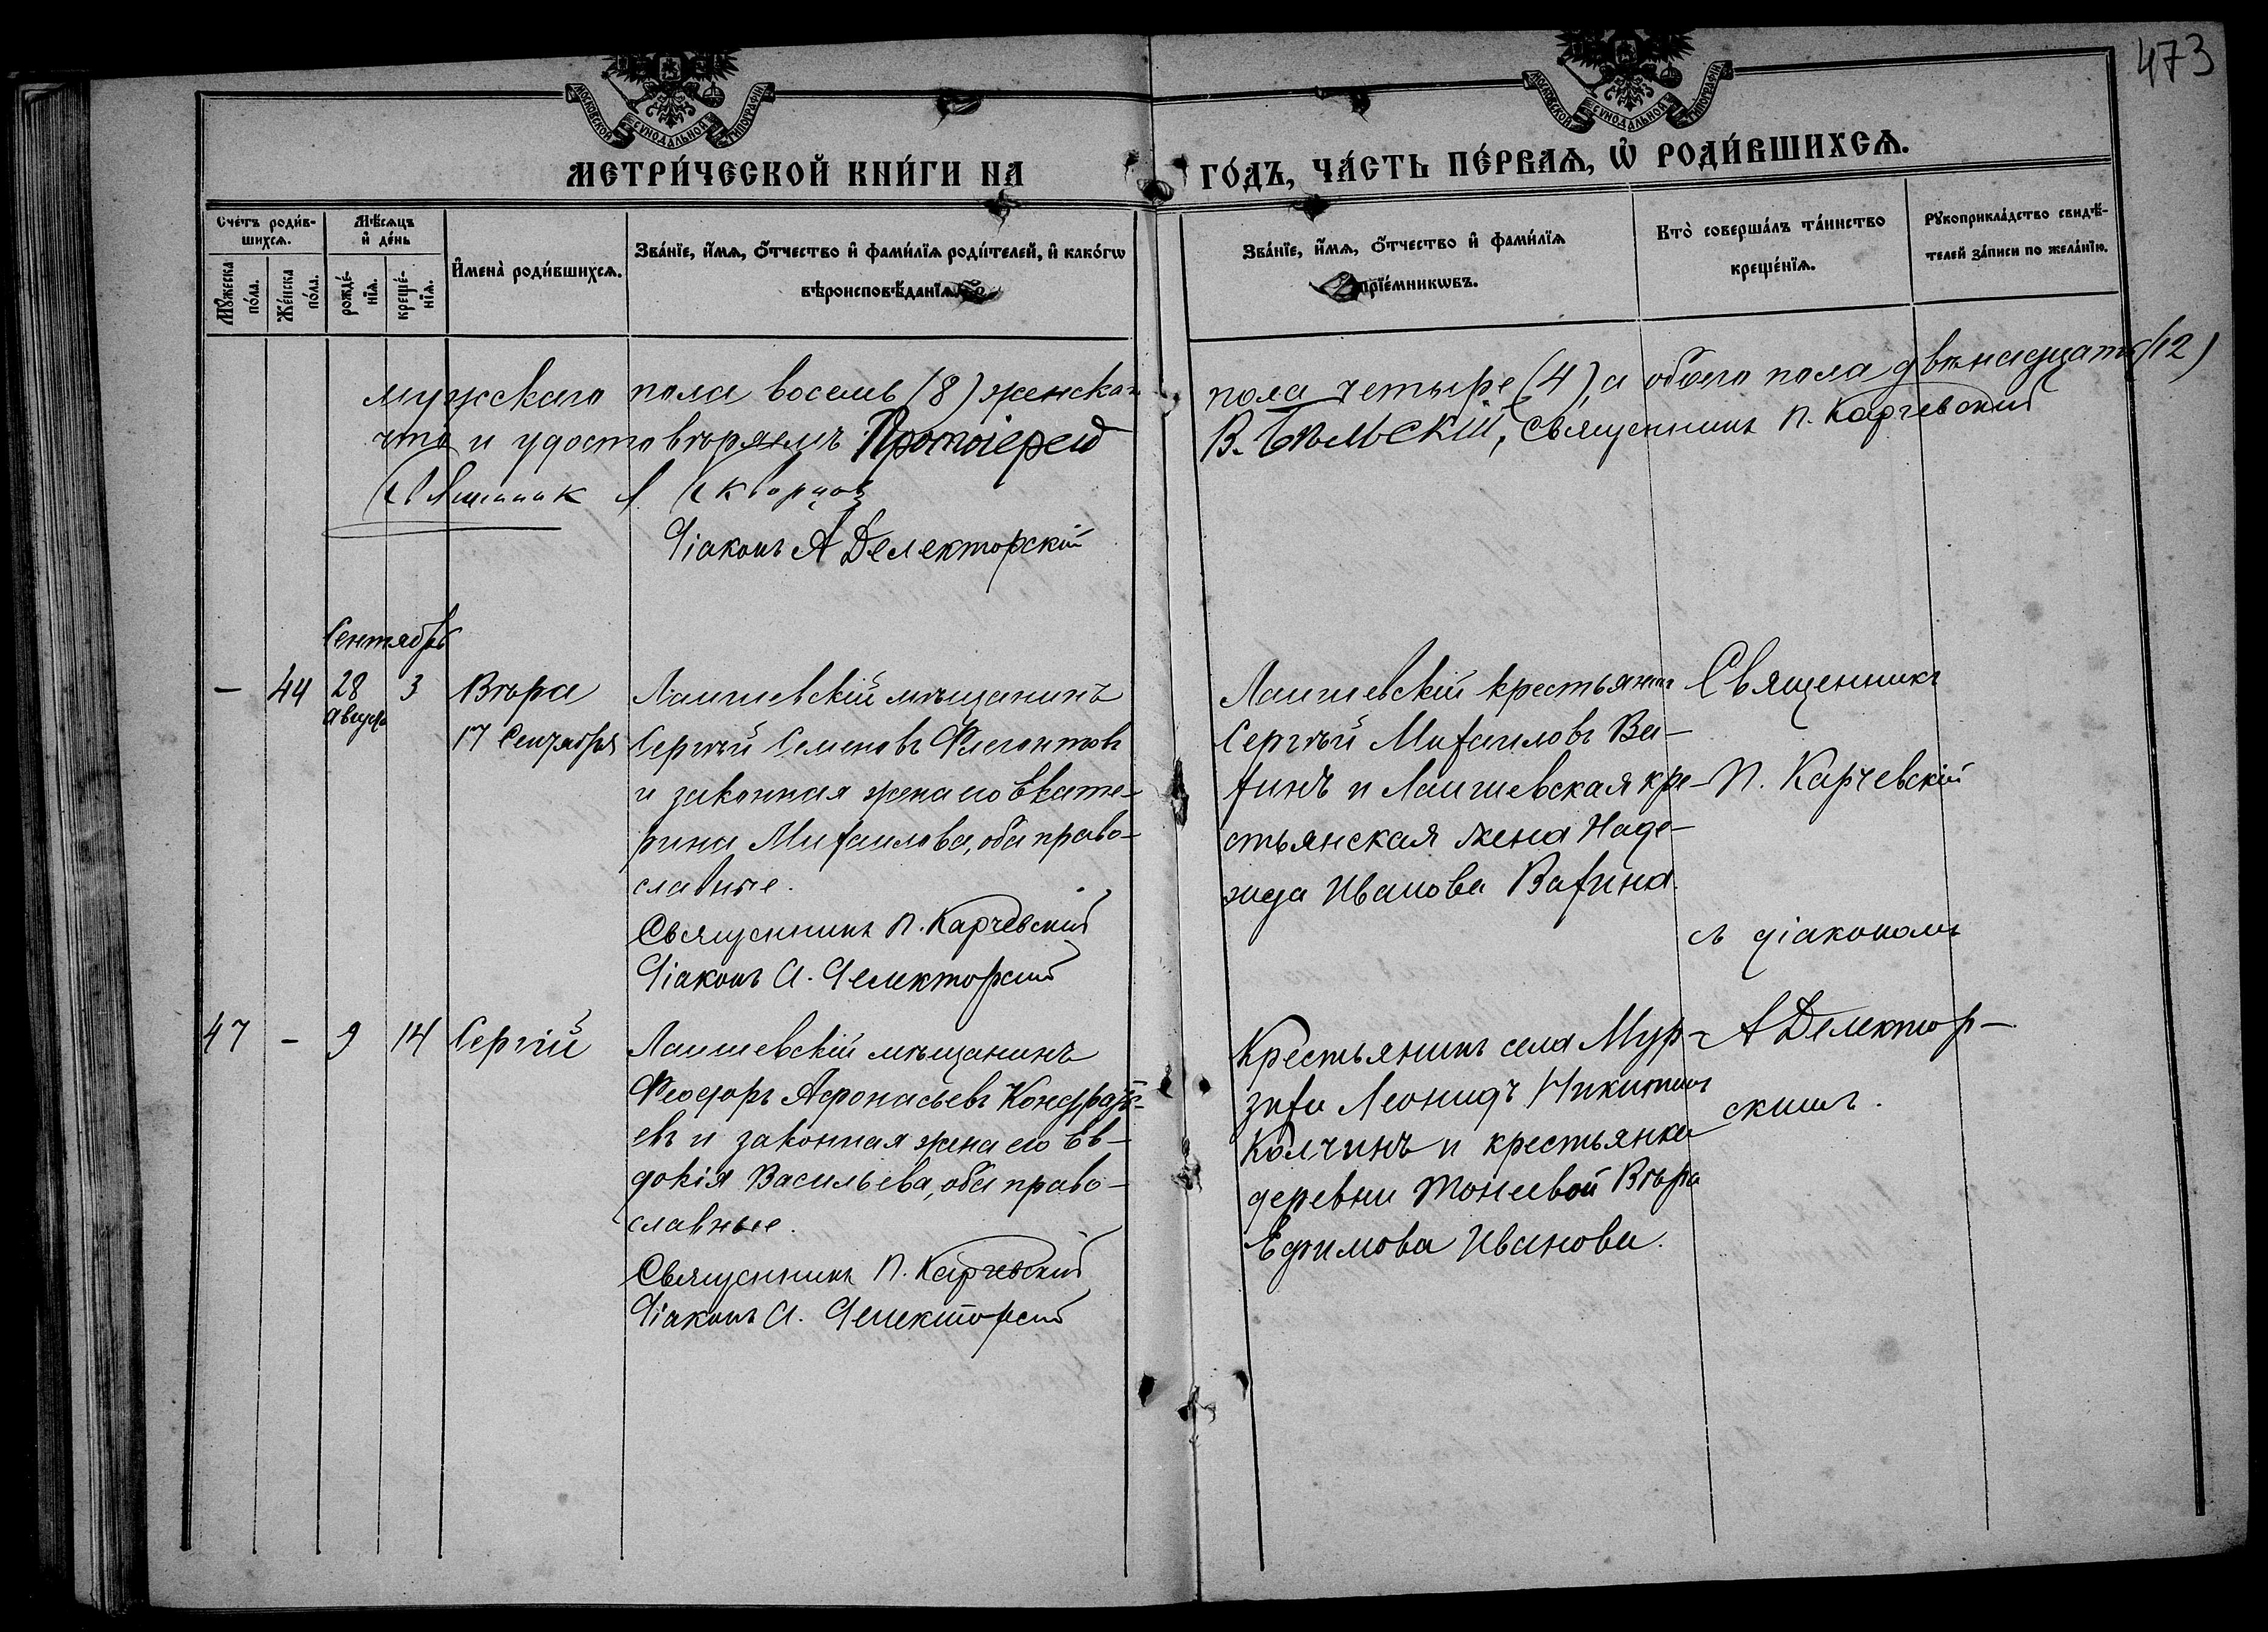 473
МОСКОВСКОЙ СѴНОДАЛЬНОЙ ТИПОГРАФІИ
МОСКОВСКОЙ СѴНОДАЛЬНОЙ ТИПОГРАФІИ
МЕТРИ́ЧЕСКОЙ КНИ́ГИ НА ГО́ДЪ, ЧА́СТЬ ПЕ́РВАѦ, Ѡ҆ РОДИ́ВШИХСѦ.
Сче́тъ роди́в-
шихсѧ.
Мꙋ́жеска
по́ла.
Же́нска
по́ла.
Мѣ́сѧцъ
и҆ де́нь
рожде́-
нїѧ.
креще́-
нїѧ.
И҆мена̀ роди́вшихсѧ.
Зва́нїе, и҆́мѧ, ѻ҆́тчество и҆ фами́лїѧ роди́телей, и҆ како́гѡ
вѣроисповѣ́данїѧ.
Зва́нїе, и҆́мѧ, ѻ҆́тчество и҆ фами́лїѧ
прїе́мникѡвъ.
Кто̀ соверша́лъ та́инство
креще́нїѧ.
Рꙋкоприкла́дство свидѣ́-
телей за́писи по жела́нїю.
мужскаго пола восемь (8) женска- пола четыре (4), а обоего пола двѣнадцать (12)
что и удостовѣряемъ Протоіерей В. Бѣльскій, Священникъ П. Карчевскій
Скворцовъ
Діаконъ А Делекторскій
Сентябрь
— 44 28 3 Вѣра
августа
17 Сентября
Лаишевскій мѣщанинъ
Сергѣй Семеновъ Флегонтовъ
и законная жена его Екате-
рина Михаилова, оба право-
славные.
Священникъ П. Карчевскій
Діаконъ А. Делекторскій
Лаишевскій крестьянинъ
Сергѣй Михаиловъ Ва-
хинъ и Лаишевская кре-
стьянская жена Наде-
жда Иванова Вахина.
Священникъ
П. Карчевскій
съ діакономъ
А Делектор-
скимъ.
47 — 9 14 Сергій
Лаишевскій мѣщанинъ
Феодоръ Афонасьевъ Кондрать-
евъ и законная жена его Ев-
докія Васильева, оба право-
славные.
Священникъ П. Карчевскій
Діаконъ А. Делекторскій
Крестьянинъ села Мур-
зихи Леонидъ Никитинъ
Колчинъ и крестьянка
деревни Тонеевой Вѣра
Ефимова Иванова.